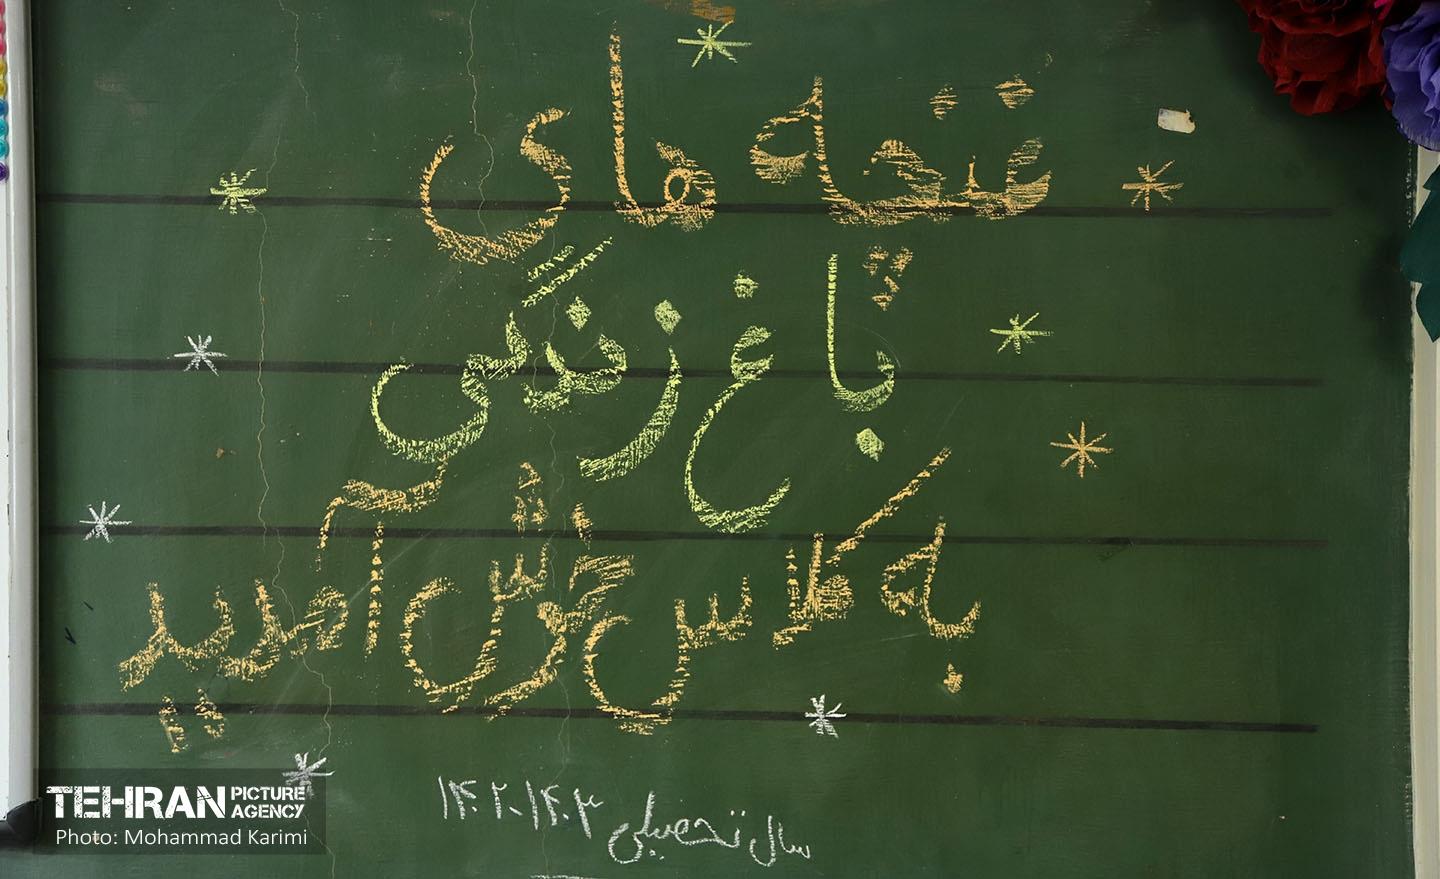 غنچه های
باغ زندگی
به کلاس خوش آمدید
سال تحصیلی ۱۴۰۳-۱۴۰۲
TEHRAN PICTURE AGENCY
Photo: Mohammad Karimi